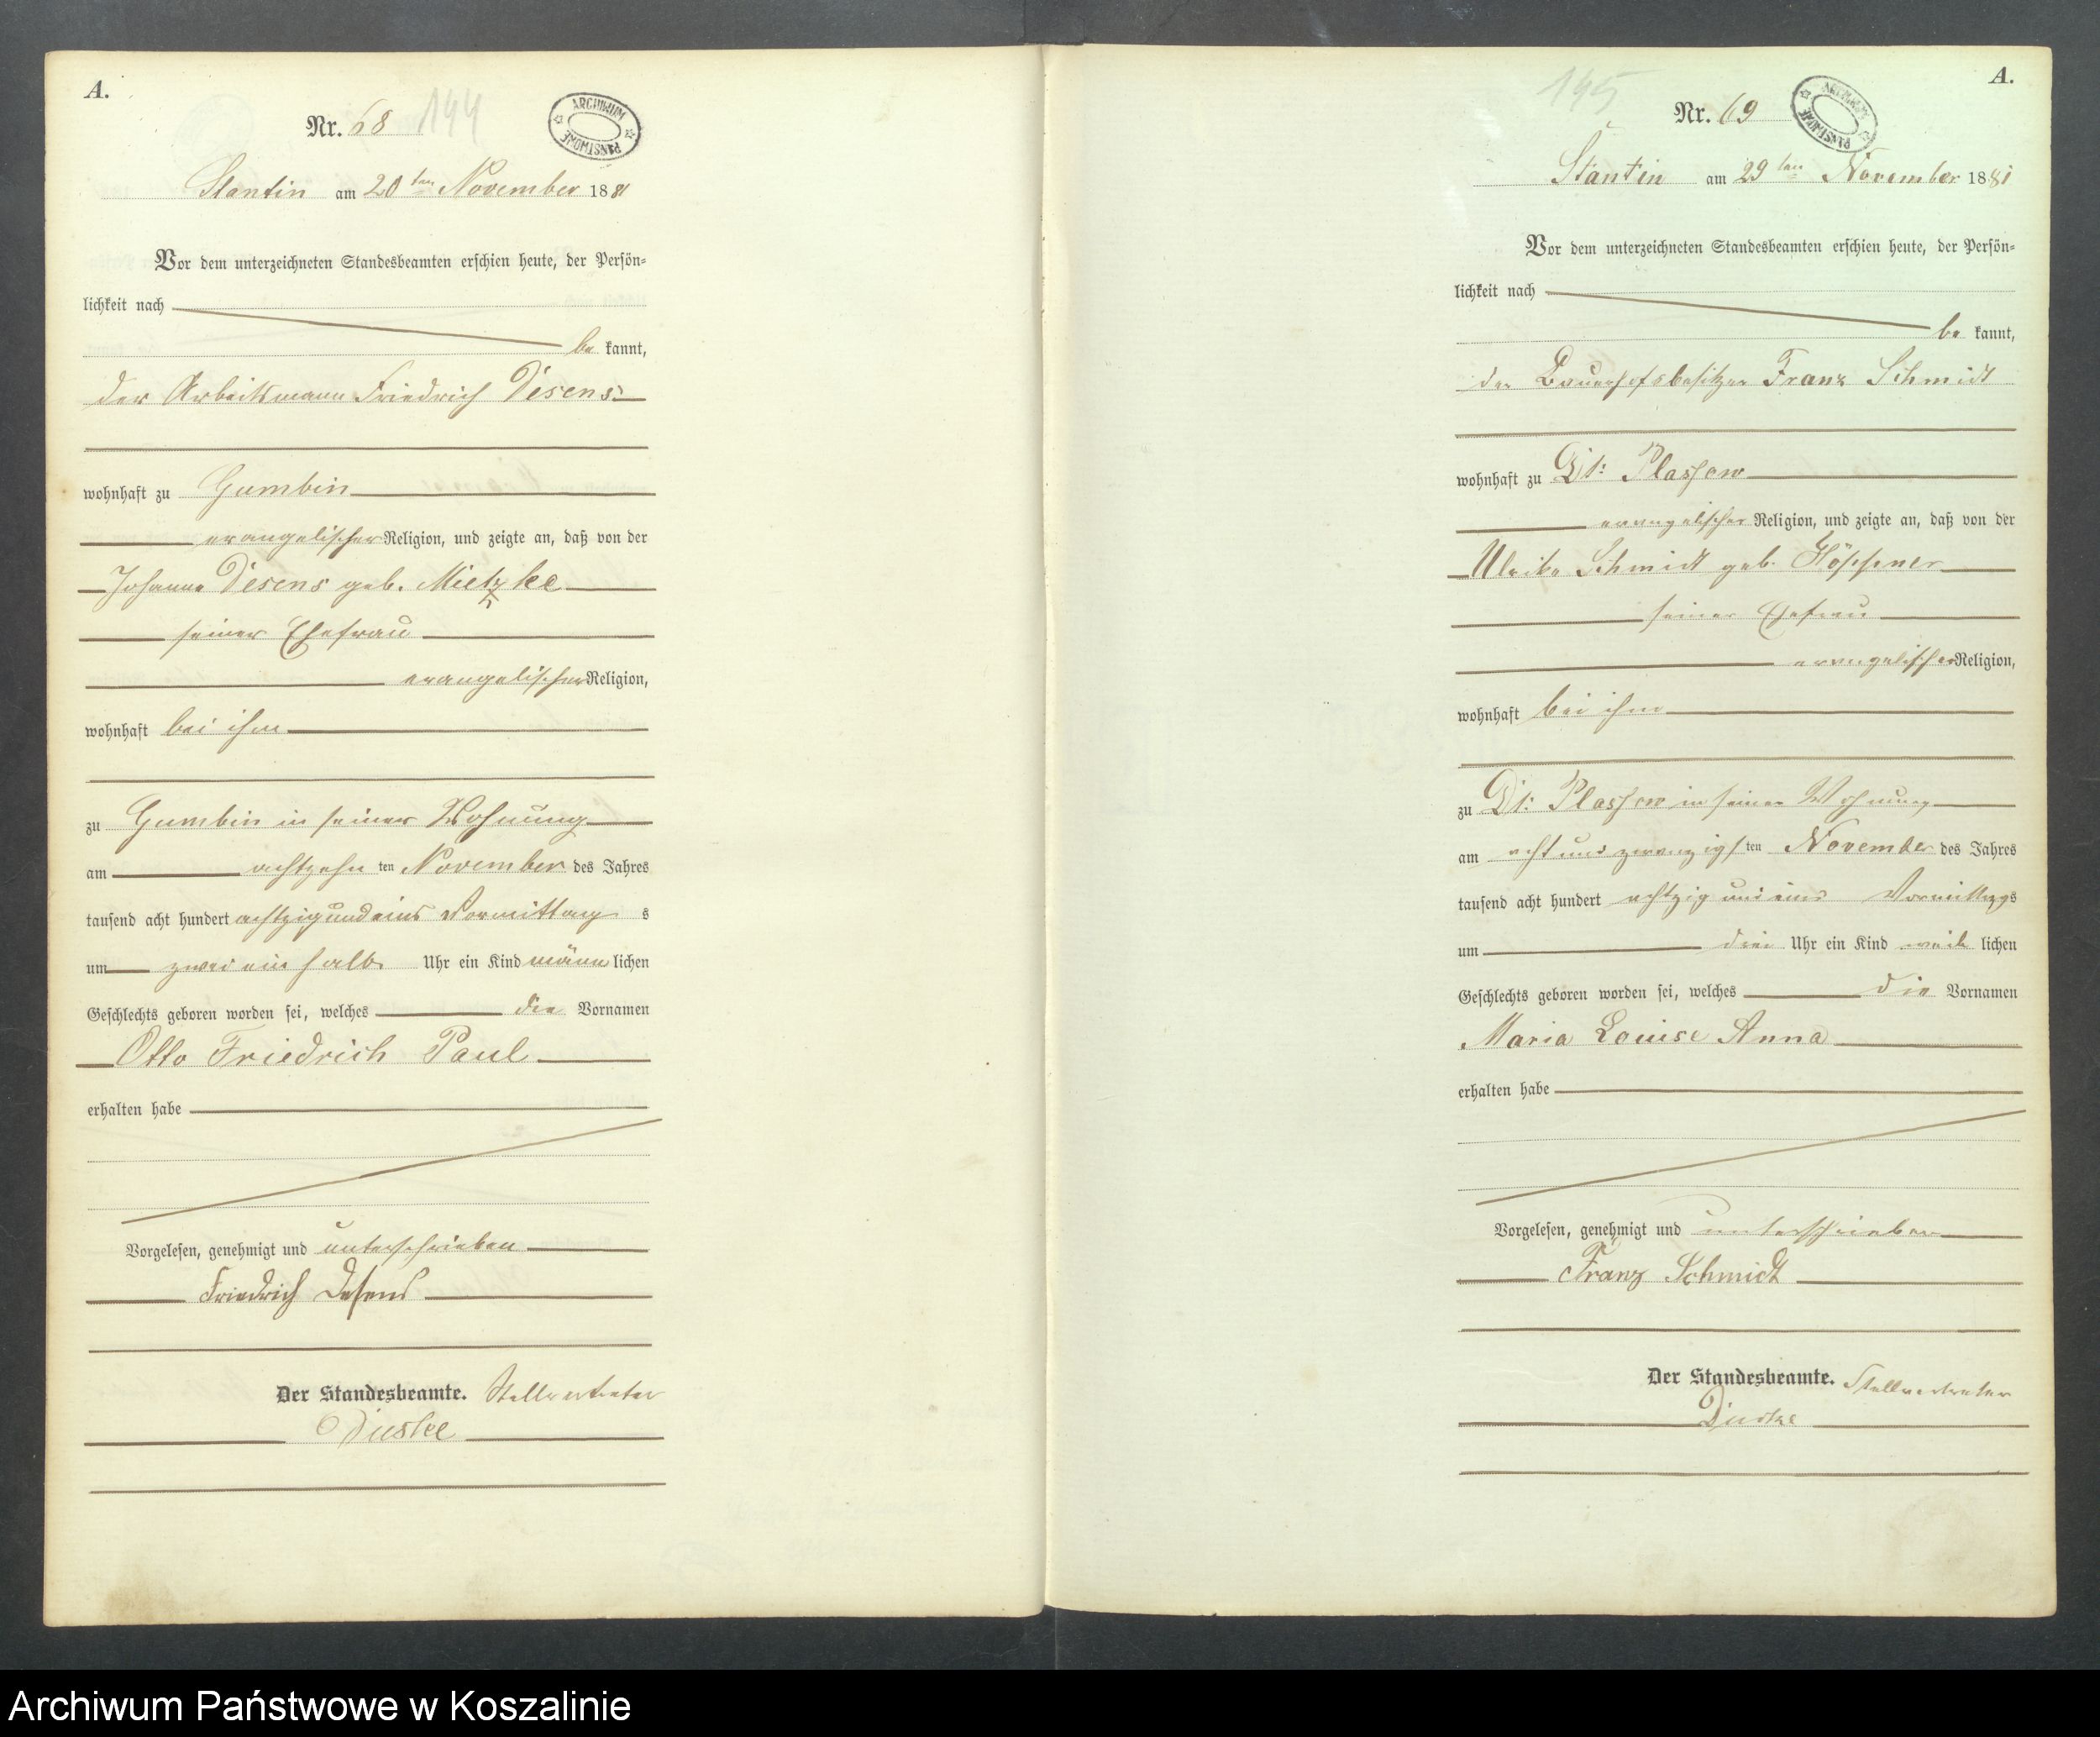 A.
Nr. 68 144
ARCHIWUM PAŃSTWOWE
Stantin am 20ten November 1881
Vor dem unterzeichneten Standesbeamten erschien heute, der Persön-
lichkeit nach
be kannt,
der Arbeitsmann Friedrich Diesens
wohnhaft zu Gumbin
evangelischer Religion, und zeigte an, daß von der
Johanna Diesens geb. Mietzke
seiner Ehefrau
evangelischer Religion,
wohnhaft bei ihm
zu Gumbin in seiner Wohnung
am achtzehn ten November des Jahres
tausend acht hundert achtzig und eins Vormittag s
um zwei ein halb Uhr ein Kind männ lichen
Geschlechts geboren worden sei, welches die Vornamen
Otto Friedrich Paul
erhalten habe
Vorgelesen, genehmigt und unterschrieben
Friedrich Desens
Der Standesbeamte. Stellvertreter
A.
145
Nr. 69
ARCHIWUM PAŃSTWOWE
Stantin am 29ten November 1881
Vor dem unterzeichneten Standesbeamten erschien heute, der Persön-
lichkeit nach
be kannt,
der Bauerhofsbesitzer Franz Schmidt
wohnhaft zu Dt: Plassow
evangelischer Religion, und zeigte an, daß von der
Ulrike Schmidt geb. Höppner
seiner Ehefrau
evangelischer Religion,
wohnhaft bei ihm
zu Dt: Plassow in seiner Wohnung
am acht und zwanzigs ten November des Jahres
tausend acht hundert achtzig und eins Vormittags
um drei Uhr ein Kind weib lichen
Geschlechts geboren worden sei, welches die Vornamen
Maria Louise Anna
erhalten habe
Vorgelesen, genehmigt und unterschrieben
Franz Schmidt
Der Standesbeamte. Stellvertreter
Archiwum Państwowe w Koszalinie